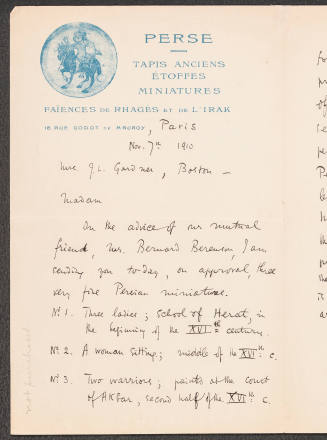 PERSE
TAPIS ANCIENS
ÉTOFFES
MINIATURES
FAÏENCES DE RHAGÈS ET DE L'IRAK
16 RUE GODOT DE MAUROY, Paris
Nov. 7th 1910
Mrs J.L. Gardner, Boston —
Madam
On the advice of our mutual
friend, Mr. Bernard Berenson, I am
sending you to-day, on approval, three
very fine Persian miniatures.
No 1. Three ladies; school of Herat, in
the beginning of the XVIth century.
No 2. A woman sitting; middle of the XVIth c.
No 3. Two warriors; painted at the court
of Akbar, second half of the XVIth c.
not purchased